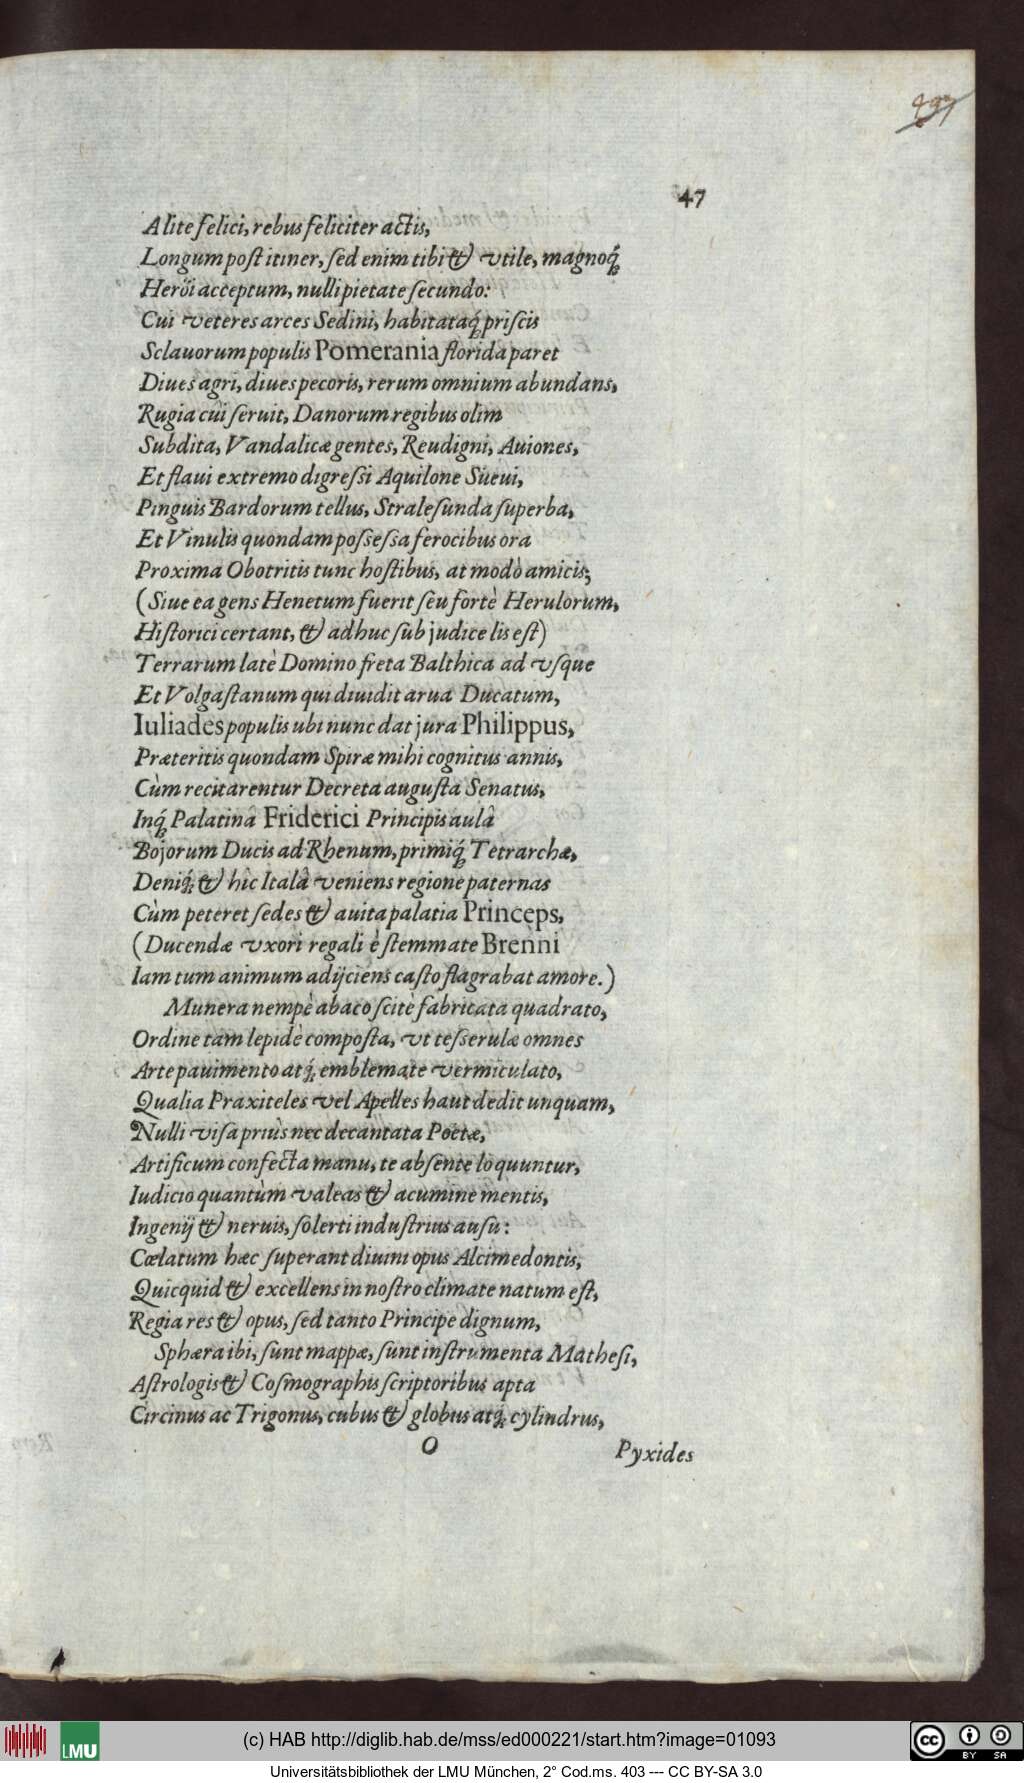 47
Alite felici, rebus feliciter actis,
Longum post itiner, sed enim tibi & vtile, magnoq́;
Heröi acceptum, nulli pietate secundo:
Cui veteres arces Sedini, habitataq́; priscis
Sclauorum populis Pomerania florida paret
Diues agri, diues pecoris, rerum omnium abundans,
Rugia cui seruit, Danorum regibus olim
Subdita, Vandalicæ gentes, Reudigni, Auiones,
Et flaui extremo digressi Aquilone Sueui,
Pinguis Bardorum tellus, Stralesunda superba,
Et Vinulis quondam possessa ferocibus ora
Proxima Obotritis tunc hostibus, at modò amicis;
(Siue ea gens Henetum fuerit seu fortè Herulorum,
Historici certant, & adhuc sub judice lis est)
Terrarum latè Domino freta Balthica ad vsque
Et Volgastanum qui diuidit arua Ducatum,
Iuliades populis ubi nunc dat jura Philippus,
Præteritis quondam Spiræ mihi cognitus annis,
Cùm recitarentur Decreta augusta Senatus,
Inq́; Palatinâ Friderici Principis aulâ
Bojorum Ducis ad Rhenum, primiq́; Tetrarchæ,
Deniq́; & hîc Italâ veniens regione paternas
Cùm peteret sedes & auita palatia Princeps,
(Ducendæ vxori regali è stemmate Brenni
Iam tum animum adijciens casto flagrabat amore.)
Munera nempè abaco scitè fabricata quadrato,
Ordine tàm lepidè composta, vt tesserulæ omnes
Arte pauimento atq́; emblemate vermiculato,
Qualia Praxiteles vel Apelles haut dedit unquam,
Nulli visa priùs nec decantata Poëtæ,
Artificum confecta manu, te absente loquuntur,
Iudicio quantùm valeas & acumine mentis,
Ingenij & neruis, solerti industrius ausu:
Cœlatum hæc superant diuini opus Alcimedontis,
Quicquid & excellens in nostro climate natum est,
Regia res & opus, sed tanto Principe dignum,
Sphæra ibi, sunt mappæ, sunt instrumenta Mathesi,
Astrologis & Cosmographis scriptoribus apta
Circinus ac Trigonus, cubus & globus atq́; cylindrus,
O
Pyxides
LMU
(c) HAB http://diglib.hab.de/mss/ed000221/start.htm?image=01093
cc BY SA
Universitätsbibliothek der LMU München, 2° Cod.ms. 403 --- CC BY-SA 3.0